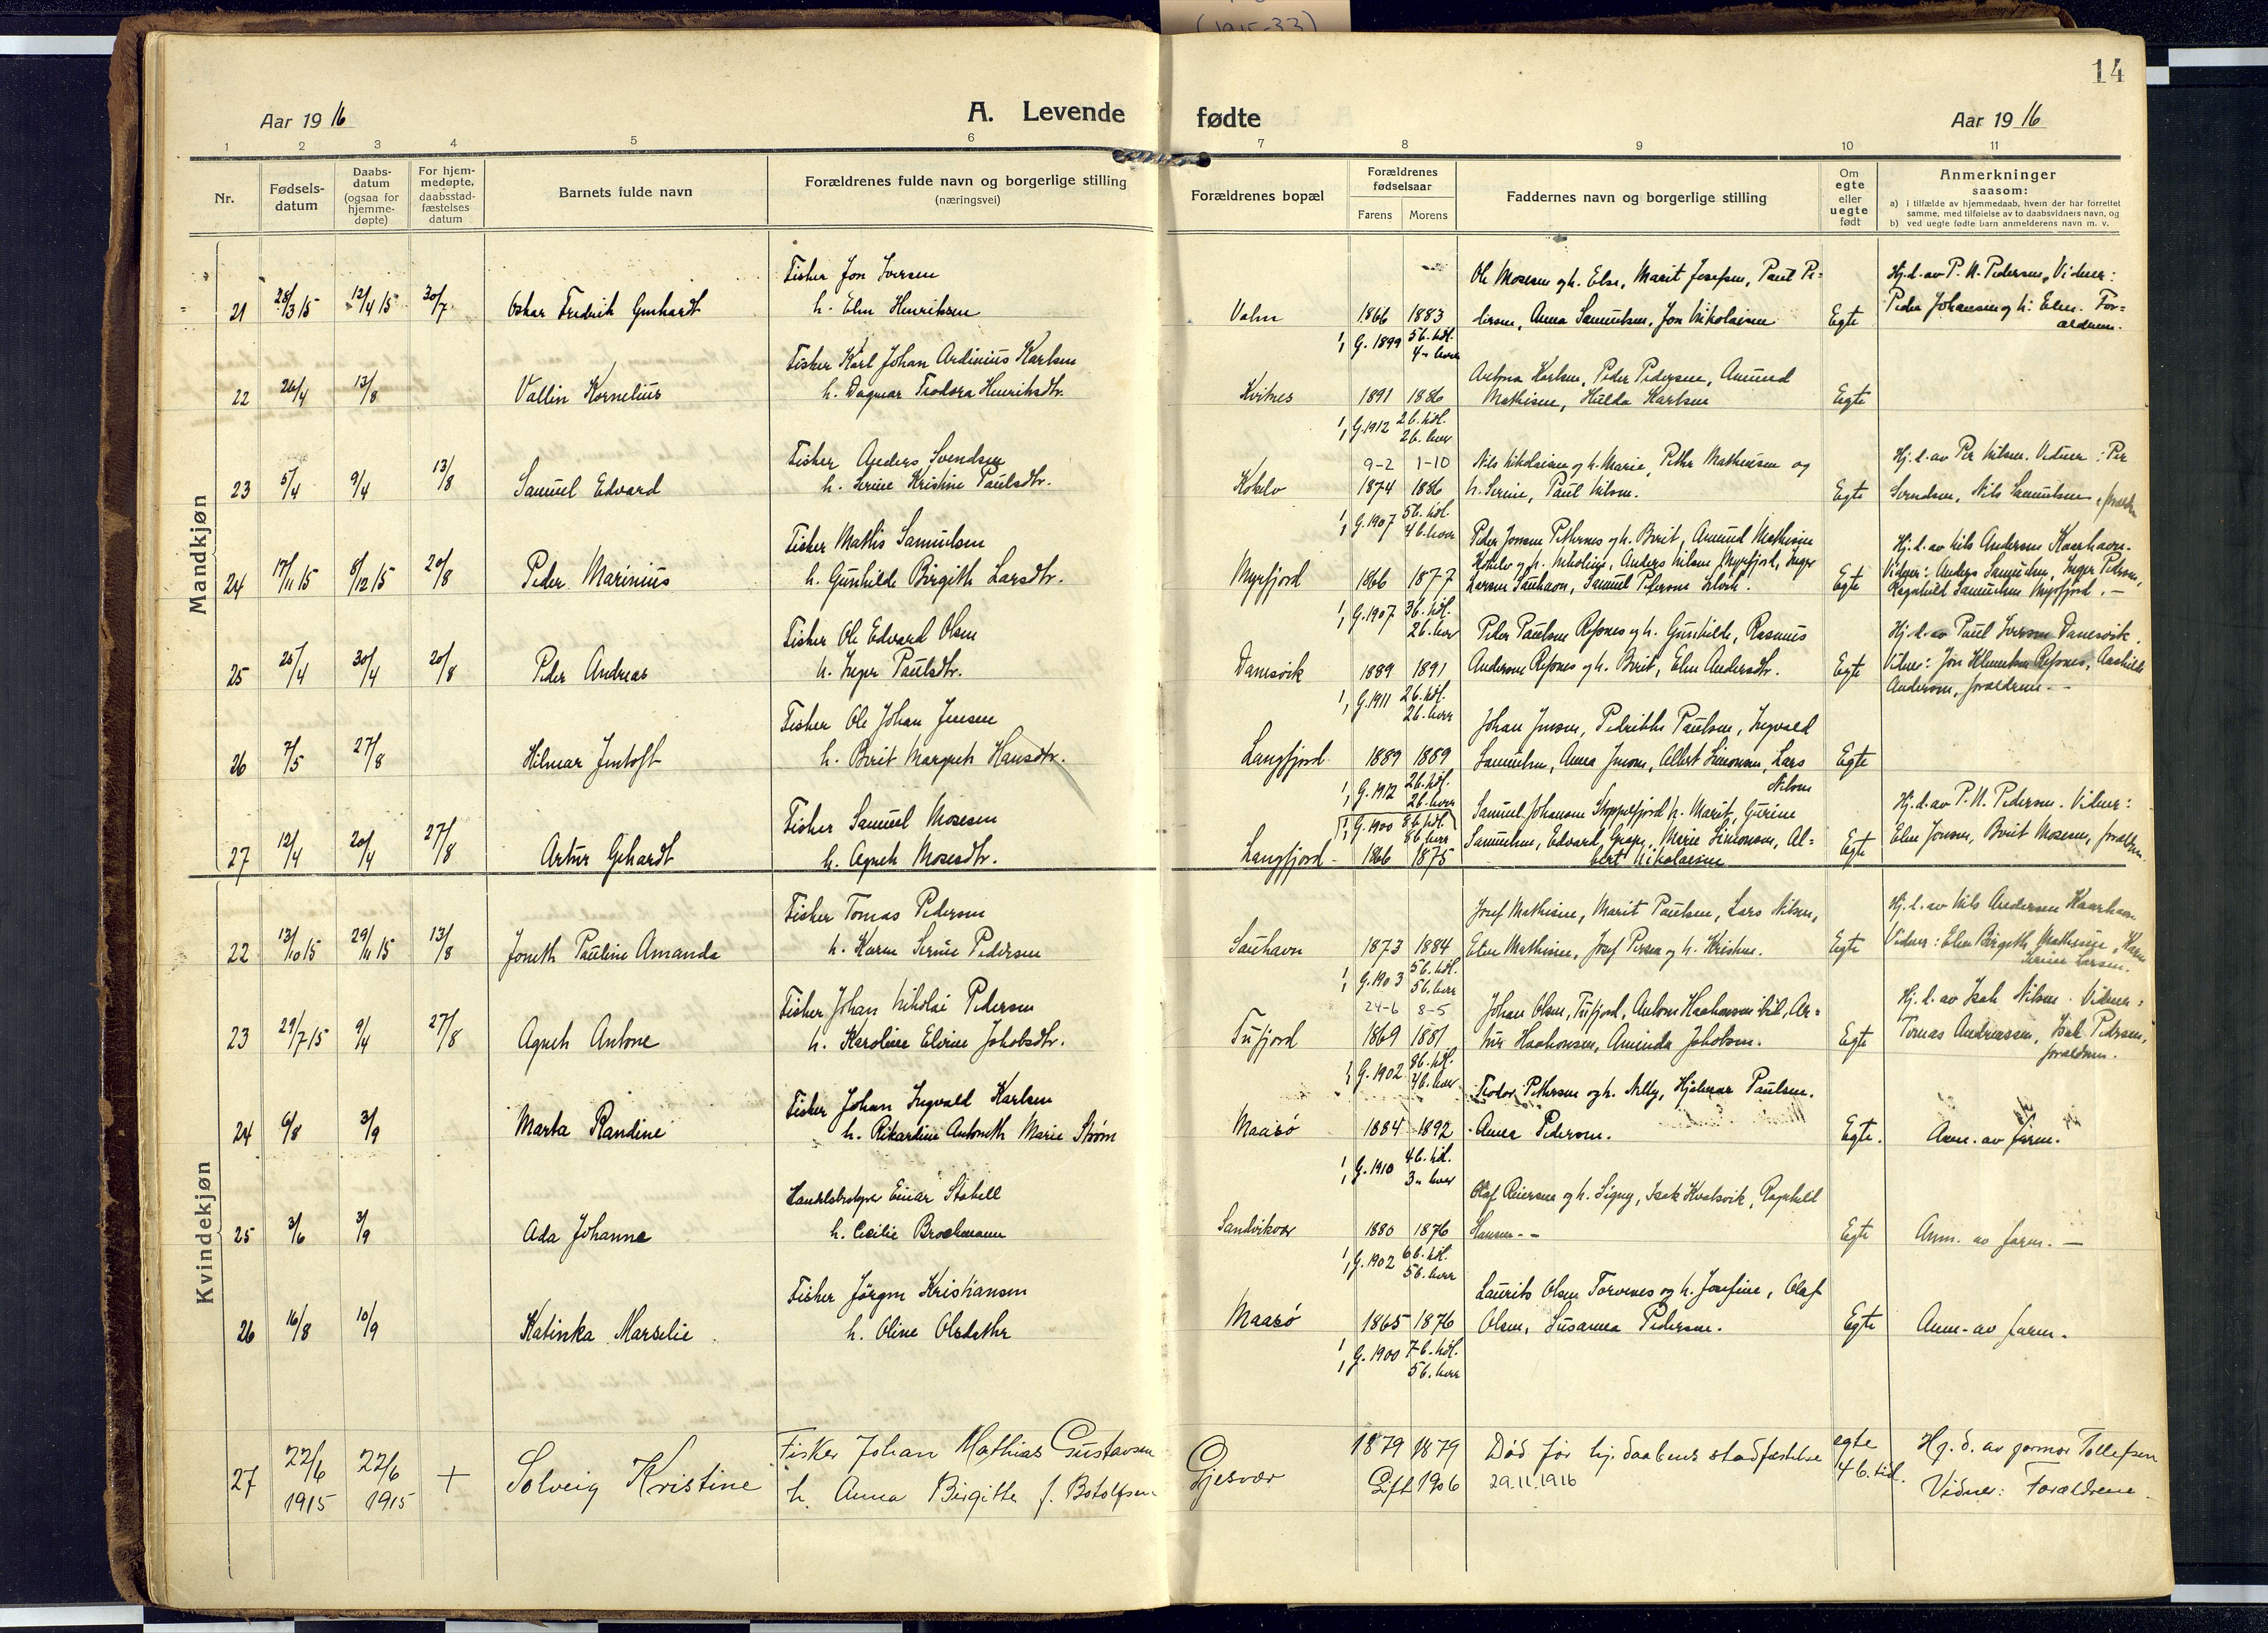 (1915-33)
14
Aar 19 16
A. Levende fødte
Aar 19 16
1 2 3 4 5 6 7 8 9 10 11
Nr.
Fødsels-
datum
Daabs-
datum
(ogsaa for
hjemme-
døpte)
For hjem-
medøpte,
daabsstad-
fæstelses
datum
Barnets fulde navn
Forældrenes fulde navn og borgerlige stilling
(næringsvei)
Forældrenes bopæl
Forældrenes
fødselsaar
Farens Morens
Faddernes navn og borgerlige stilling
Om
egte
eller
uegte
født
Anmerkninger
saasom:
a) i tilfælde av hjemmedaab, hvem der har forrettet
samme, med tilføielse av to daabsvidners navn, og
b) ved uegte fødte barn anmelderens navn m. v.
Mandkjøn
Fisker Jon Iversen
Ole Mosesen og h. Elen, Marit Josefsen, Paul Pe-
Hj. d. av P. N. Pedersen, Vidner:
21 28/3 15 12/4 15 30/7 Oskar Fredrik Gunhardt h. Elen Henriksen Valen 1866 1883 dersen, Anna Samuelsen, Jon Nikolaisen Egte Peder Johansen og h. Elen. For-
ældrene.
G. 1899 5 b. hðl.
4 " horr
Fisker Karl Johan Ardinius Karlsen
Karlsen, Peder Pedersen, Amund
22 26/4 13/8 Vallin Kornelius h. Dagmar Teodora Henriksdtr. Kvitnes 1891 1886 Mathisen, Hulda Karlsen Egte
G. 1912 2 b. hðl.
2 b. horr
Fisker Anders Svendsen
9-2 1-10 Nils Nikolaisen og h. Marie, Petter Mathisen og
Hj. d. av Per Nilsen. Vidner: Per
23 5/4 9/4 13/8 Samuel Edvard h. Serine Kristine Paulsdtr. Kokelv 1874 1886 h. Serine, Paul Nilsen. Egte Svendsen, Nils Samuelsen,
G. 1907 5 b. hðl.
4 b. horr
Fisker Mathis Samuelsen
Peder Jonsen Petternes og h. Berit, Amund Mathisen
Kokelv og h. Nikoline, Anders Nilsen Myrfjord, Inger
Hj. d. av Nils Andersen Kaarhavn.
Vidner: Anders Samuelsen, Inger Pedersen,
24 17/11 15 8/12 15 20/8 Peder Marinius h. Gunhilde Birgith Larsdtr. Myrfjord 1866 1877 Larsen Sauhavn, Samuel Pedersen Egte Ragnhild Samuelsen Myrfjord. -
G. 1907 3 b. hðl.
2 b. horr
Fisker Ole Edvard Olsen
Peder Paulsen Refsnes og h. Gunhilde, Rasmus
Hj. d. av Paul Iversen Danesvik.
25 25/4 30/4 20/8 Peder Andreas h. Inger Paulsdtr. Danesvik 1889 1891 Andersen Refsnes og h. Berit, Elen Andersdtr. Egte Vidner: Jon Klemetsen Refsnes, Aashild
Andersen, forældrene. -
G. 1911 2 b. hðl.
2 b. horr
Fisker Ole Johan Jensen
Johan Jensen, Pedrikke Paulsen, Ingvald
26 7/5 27/8 Hilmar Jentoft h. Berit Margreth Hansdtr. Langfjord 1889 1889 Samuelsen, Anna Jensen, Albert Simonsen, Lars Egte
Nilsen
G. 1912 2 b. hðl.
2 b. horr
Fisker Samuel Mosesen
G. 1900 8 b. hðl.
8 b. horr
Samuel Johansen Stoppelfjord h. Marit, Gurine
Samuelsen, Edvard Grape, Marie Simonsen, Al-
Hj. d. av P. N. Pedersen. Vidner:
27 12/4 20/4 27/8 Artur Gehardt h. Agneth Mosesdtr. Langfjord 1866 1875 bert Nikolaisen Egte Elen Jonsen, Berit Mosesen, forældrene
Kvindekjøn
Fisker Tomas Pedersen
Josef Mathisen, Marit Paulsen, Lars Nilsen,
Hj. d. av Nils Andersen Kaarhavn
22 13/10 15 29/11 15 13/8 Joneth Pauline Amanda h. Karen Serine Pedersen Sauhavn 1873 1884 Elen Mathisen, Josef Persen og h. Kristine. Egte Vidner: Elen Birgeth Mathisen, Karen
Serine Larsen.
G. 1903 5 b. hðl.
5 b. horr
Fisker Johan Nikolai Pedersen
24-6 8-5 Johan Olsen, Tufjord, Anton Haakonsen ibid, Ar-
Hj. d. av Isak Nilsen. Vidner:
23 29/7 15 9/4 27/8 Agneth Antone h. Karoline Elvine Jakobsdtr. Tufjord 1869 1881 tur Haakonsen, Aminda Jakobsen. Egte Tomas Andreassen, Isak Pedersen,
forældrene.
G. 1902 8 b. hðl.
4 b. horr
Fisker Johan Ingvald Karlsen
Teodor Pettersen og h. Nelly, Hjalmar Paulsen.
24 6/8 3/9 Marta Randine h. Rikardine Antoneth Marie Strøm Maasø 1884 1892 Anna Pedersen. Egte. Anm. av farm.
G. 1910 4 b. hðl.
3 " horr
Handelsbestyrer Einar Stabell
Olaf Reiersen og h. Signy, Isak Kvalsvik, Ragnhild
25 3/6 3/9 Ada Johanne h. Cecilie Brochmann Sandvikvær 1880 1876 Hansen - - Egte Anm. av farm. -
G. 1902 6 b. hðl.
5 b. horr
Fisker Jørgen Kristiansen
Laurits Olsen Torvenes og h. Josefine, Olaf
26 16/8 10/9 Katinka Marselie h. Oline Olsdatter Maasø 1865 1876 Olsen, Susanna Pedersen. Egte Anm. av farm.
G. 1900 7 b. hðl.
5 b. horr
27 22/6 1915 22/6 1915 + Solveig Kristine Fisker Johan Mathias Gustavsen
h. Anna Birgitte f. Botolfsen
Gjesvær 1879 1879
Gift 1906
Død før hj. daabens stadfæstelse
29.11.1916
egte
4 b. tid.
Hj. d. av gormor Tollefsen
Vidner: Forældrene.